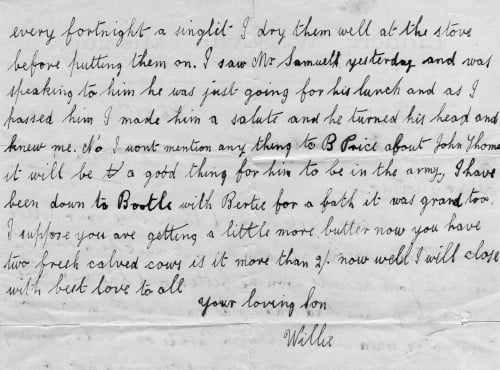 every fortnight a singlit I dry them well at the stove
before putting them on. I saw Mr Samuell yesterday and was
speaking to him he was just going for his lunch and as I
passed him I made him a salute and he turned his head and
knew me. No I wont mention any thing to B Price about John Thoma
it will be a good thing for him to be in the army, I have
been down to Bootle with Bertie for a bath it was grand too.
I suppose you are getting a little more butter now you have
two fresh calved cows is it more than 2/- now well I will close
with best love to all
Your loving Son
Willie